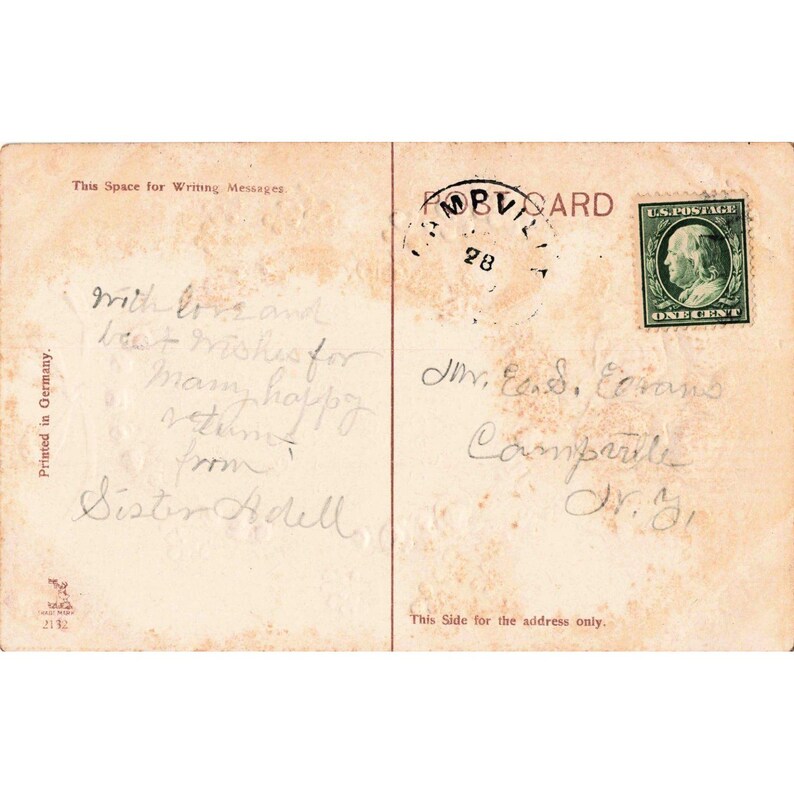 This Space for Writing Messages
POST CARD
CAMPVILL
28
U.S. POSTAGE
ONE CENT
With love and
best wishes for
Many happy
returns
from
Sister Adell
Mr. E. S. Evans
Campville
N. Y.
Printed in Germany.
TRADE MARK
2132
This Side for the address only.